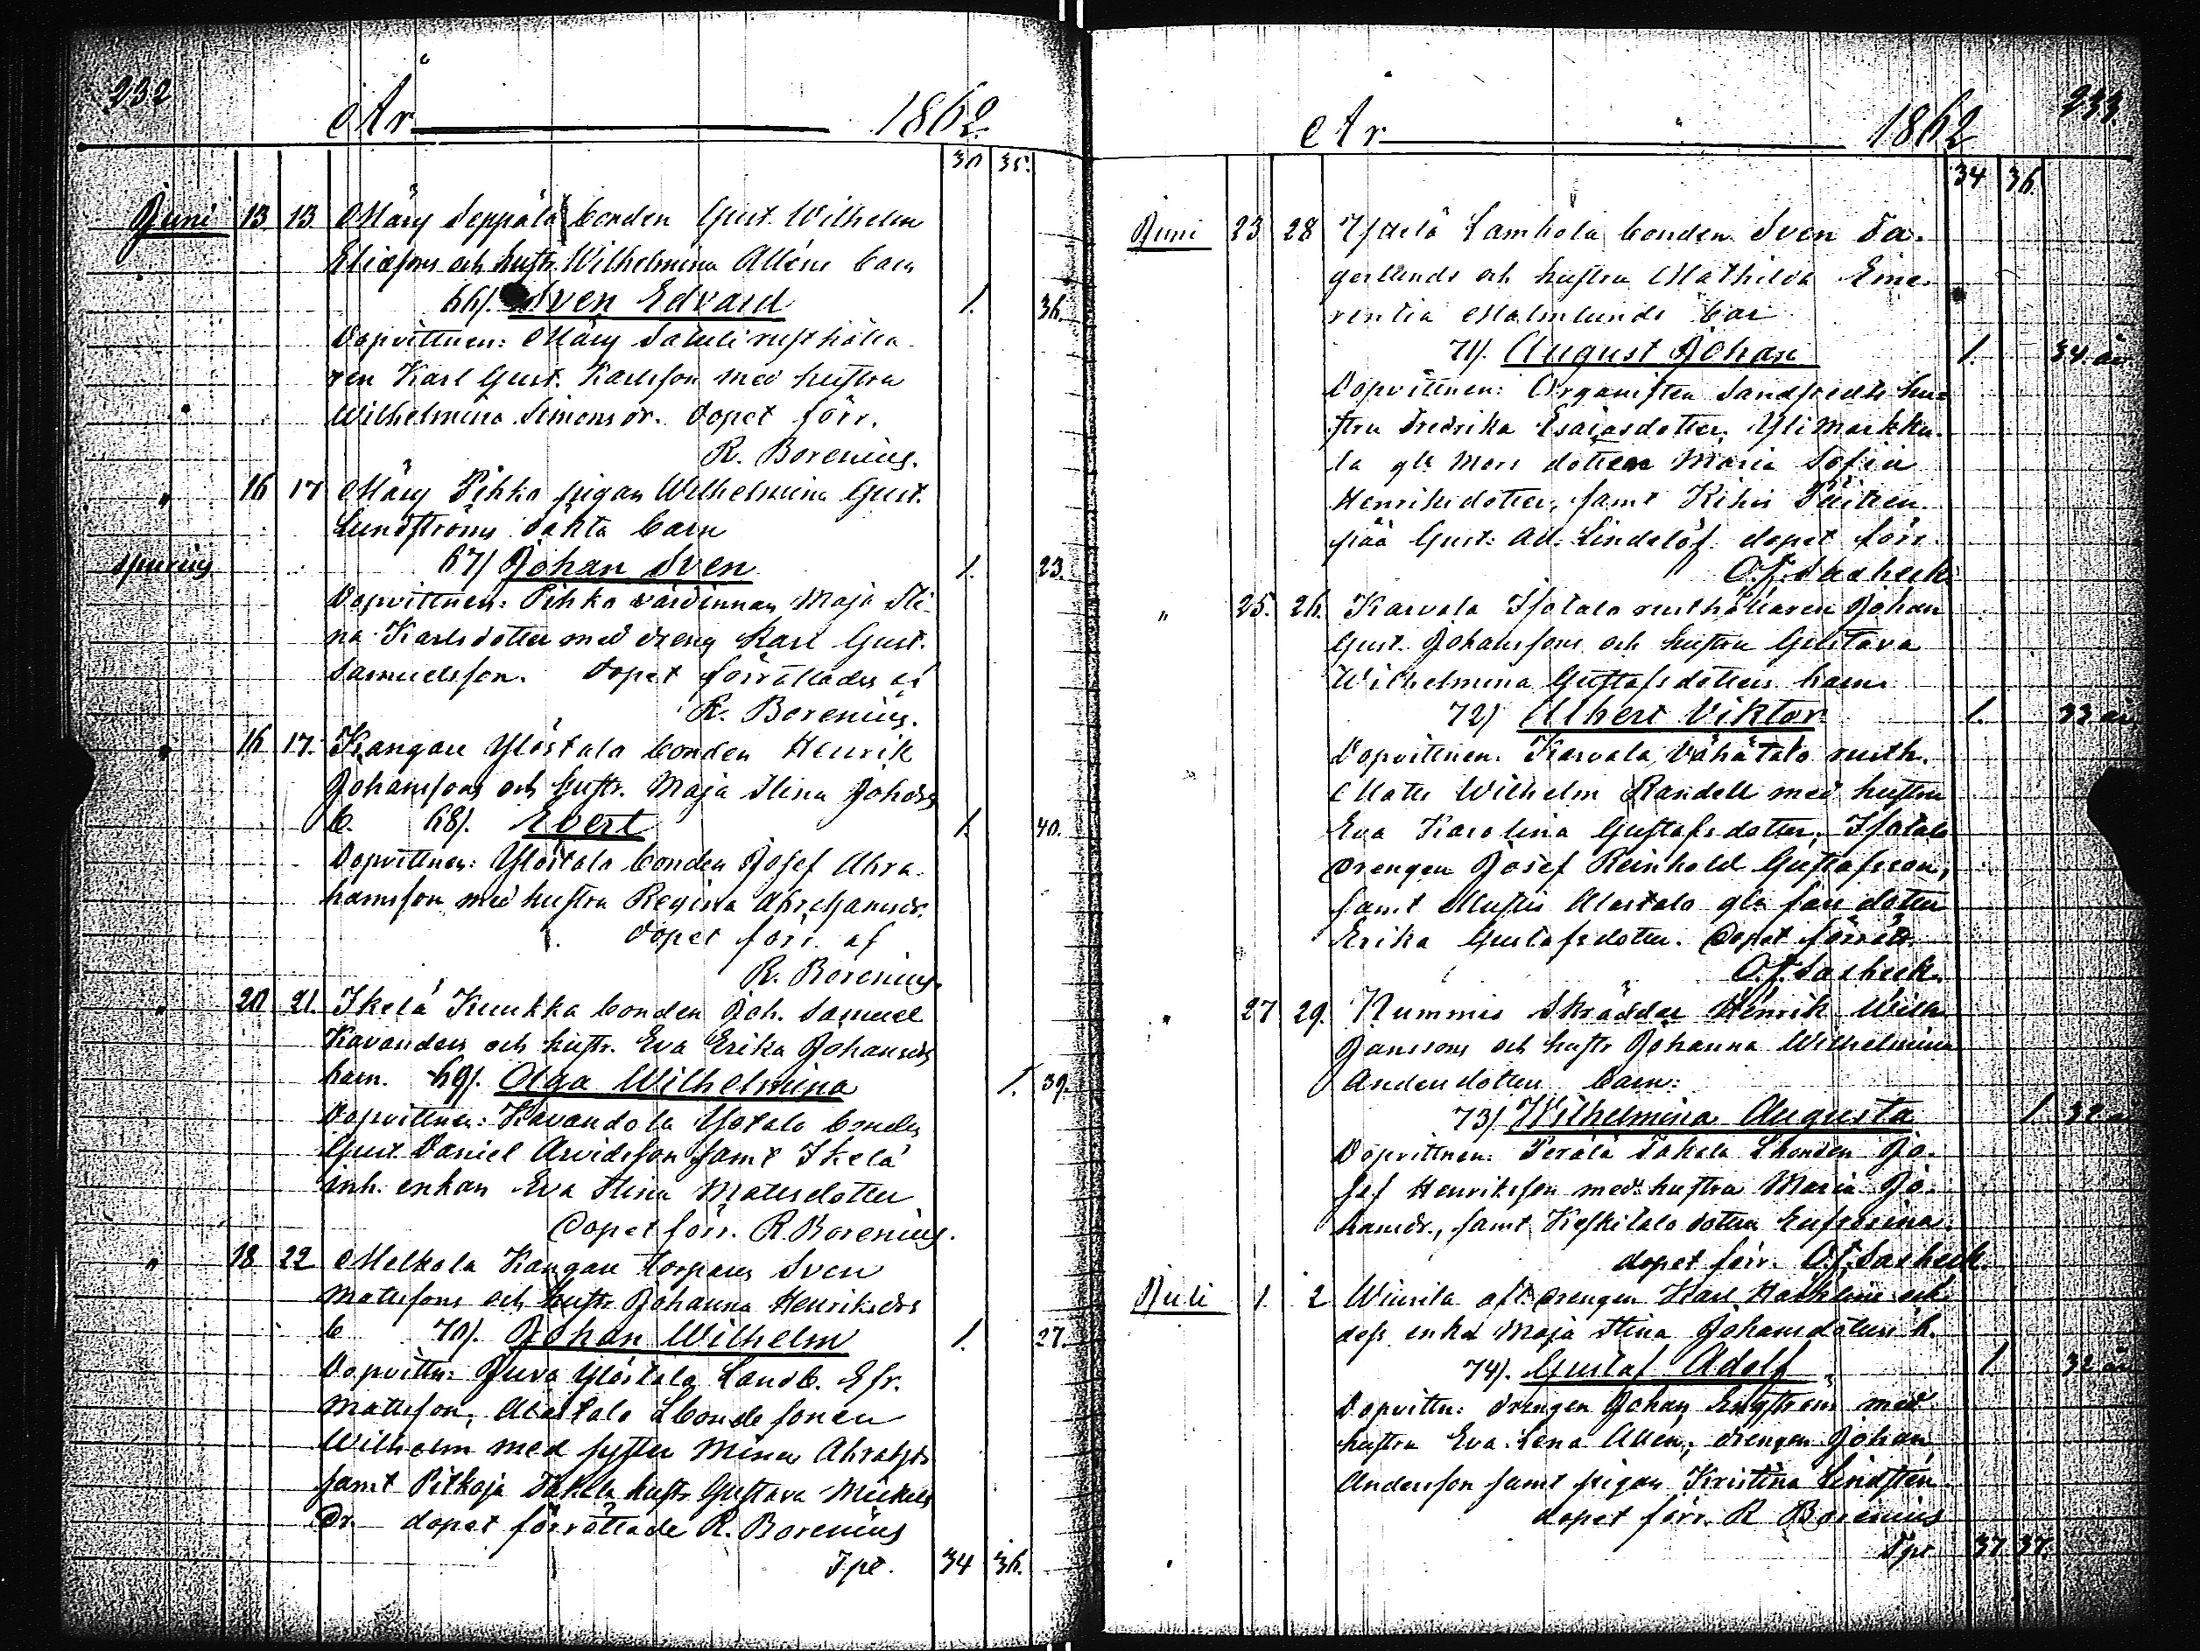 232
År 1862.
30 35.
Juni 13 13 Märy Seppälä bonden Gust. Wilhelm
Eliasons och hustr. Wilhelmina Alléns barn
66). Sven Edvard 1. 36.
Dopvittnen: Märy Sakuli rusthålla-
ren Karl Gust. Karlsson med hustru
Wilhelmina Simonsdr. Dopet förr.
R. Borenius.
" 16 17 Märy Pihko pigan Wilhelmina Gust.
Lundströms oäkta barn
spurius 67) Johan Sven 1. 23.
Dopvittnen: Pihko värdinnan Maja Sti-
na Karlsdotter med dreng Karl Gust.
Samuelsson. Dopet förrättades af
R. Borenius.
" 16 17. Kangare Ylöstalo bonden Henrik
Johanssons och hustr. Maja Stina Johdrs
b. 68). Evert 1. 40.
Dopvittnen: Ylöstalo bonden Josef Abra-
hamsson med hustru Regina Abrahamsdr.
Dopet förr. af
R. Borenius.
" 20 21. Ikelä Kuukka bonden Joh. Samuel
Kavanders och hustr. Eva Erika Johansdrs
barn. 69). Olga Wilhelmina 1. 39.
Dopvittnen: Kavandola Yötalo bonden
Gust Daniel Arvidsson samt Ikelä
inh. enkan Eva Stina Matsdotter
Dopet förr. R. Borenius.
" 18 22 Melkola Kangare torpares Sven
Mattssons och hustr. Johanna Henriksdrs
b 70). Johan Wilhelm 1. 27.
Dopvittn: Juva Ylöstalo Landb. Efr.
Mattsson, Alastalo Lbonde sonen
Wilhelm med syster Mina Abrahsdr
samt Pitkoja Takala hustr. Gustava Mickels
dr. dopet förrättade R. Borenius
Tpt. 34 36.
233.
År 1862
34 36.
Juni 23 28 Lamhola bonden Sven Fa-
gerlunds och hustru Mathilda Eme-
rentia Malmlunds bar
71). August Johan 1. 34. år
Dopvittnen: Organisten Sandstedts hu-
stru Fredrika Esaiasdotter, Yli Markku-
la gls Mors dotter Maria Sofia
Henriksdotter, samt Kihis
Gust. Ad. Lindelöf. dopet förr.
" 25. 26. Karvala Isotalo rusthållaren Johan
Gust. Johanssons och hustru Gustava
Wilhelmina Gustafsdotters barn.
72) Albert Viktor 1. 33 år
Dopvittnen: Karvala Vähätalo rusth.
Matts Wilhelm Randell med hustru
Eva Karolina Gustafsdotter, Isotalo
drengen Josef Reinhold Gustafsson,
samt Alastalo gla fars dotter
Erika Gustafsdotter. Dopet förrätt.
" 27 29. Nummis Skräddar Henrik Wilh.
Janssons och hustr Johanna Wilhelmina
Andersdotters barn:
73) Wilhelmina Augusta 1.
Dopvittnen: Perälä Takala Lbonden Jo-
sef Henriksson med hustru Maria Jo-
hansdr., samt Keskitalo dotter Eufrosina.
dopet förr.
Juli 1. 2 Winnila afl. drengen Karl och
dess enka Maja Stina Johansdotters b.
74). Gustaf Adolf 1 32 år
Dopvittn: drengen Johan Engström med
hustru Eva Lena Allén, drengen Johan
Andersson samt pigan Kristina Lindsten
dopet förr. R Borenius
Tpt 37. 37.